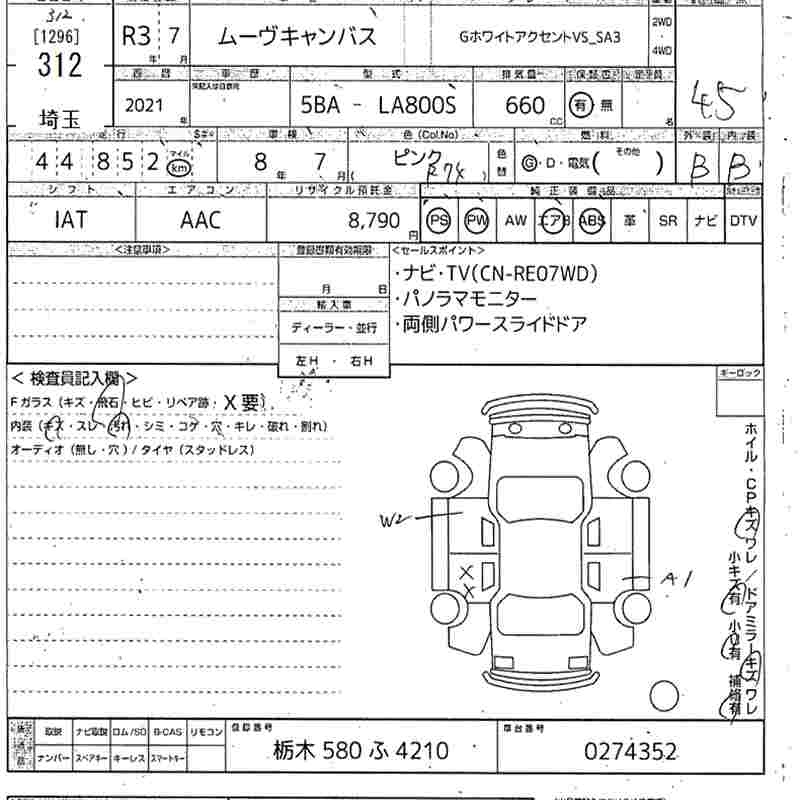 312
[1296]
312
埼玉
R3 年 7 月
ムーヴキャンバス
GホワイトアクセントVS_SA3
2WD
4WD
西暦 車歴 型式 排気量 保証書 定員
2021 年
5BA - LA800S
660 CC
有 無
名
45
走行 車検 色(Col.No) 燃料 外装 内装
44852 マイル km
8 年 7 月
ピンク
R74
色替
G・D・電気( その他 )
B B
シフト エアコン リサイクル預託金 純正装備品
IAT AAC 8,790 円
PS PW AW エアB ABS 革 SR ナビ DTV
<注意事項>
登録書類有効期限
<セールスポイント>
月 日
・ナビ・TV(CN-RE07WD)
・パノラマモニター
・両側パワースライドドア
輸入車
ディーラー・並行
左H ・ 右H
< 検査員記入欄 >
キーロック
Fガラス(キズ・飛石・ヒビ・リペア跡・X要)
内装(キズ・スレ・汚れ・シミ・コゲ・穴・キレ・破れ・割れ)
オーディオ(無し・穴)/タイヤ(スタッドレス)
W2
X
X
A1
ホイル・CPキズワレ/ドアミラーキズワレ
小キズ有 小凹有 補修有
取説 ナビ取説 ロム/SD B-CAS リモコン
ナンバー スペアキー キーレス スマートキー
登録番号
栃木 580 ふ 4210
車台番号
0274352